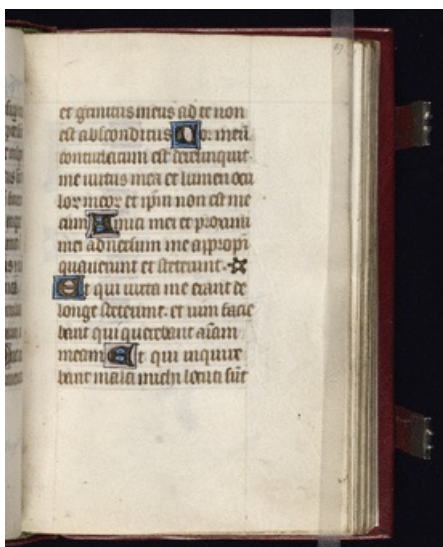 et gemitus meus ad te non
est absconditus Cor meū
conturbatum est dereliquit
me virtus mea et lumen ocu
lor meor et ipm non est me
cum Amici mei et proximi
mei adversum me appropi
quaverunt et steterunt.
Et qui iuxta me erant de
longe steterunt. et vim facie
bant qui querebant aīam
meam Et qui inquire
bant mala michi locuti sūt